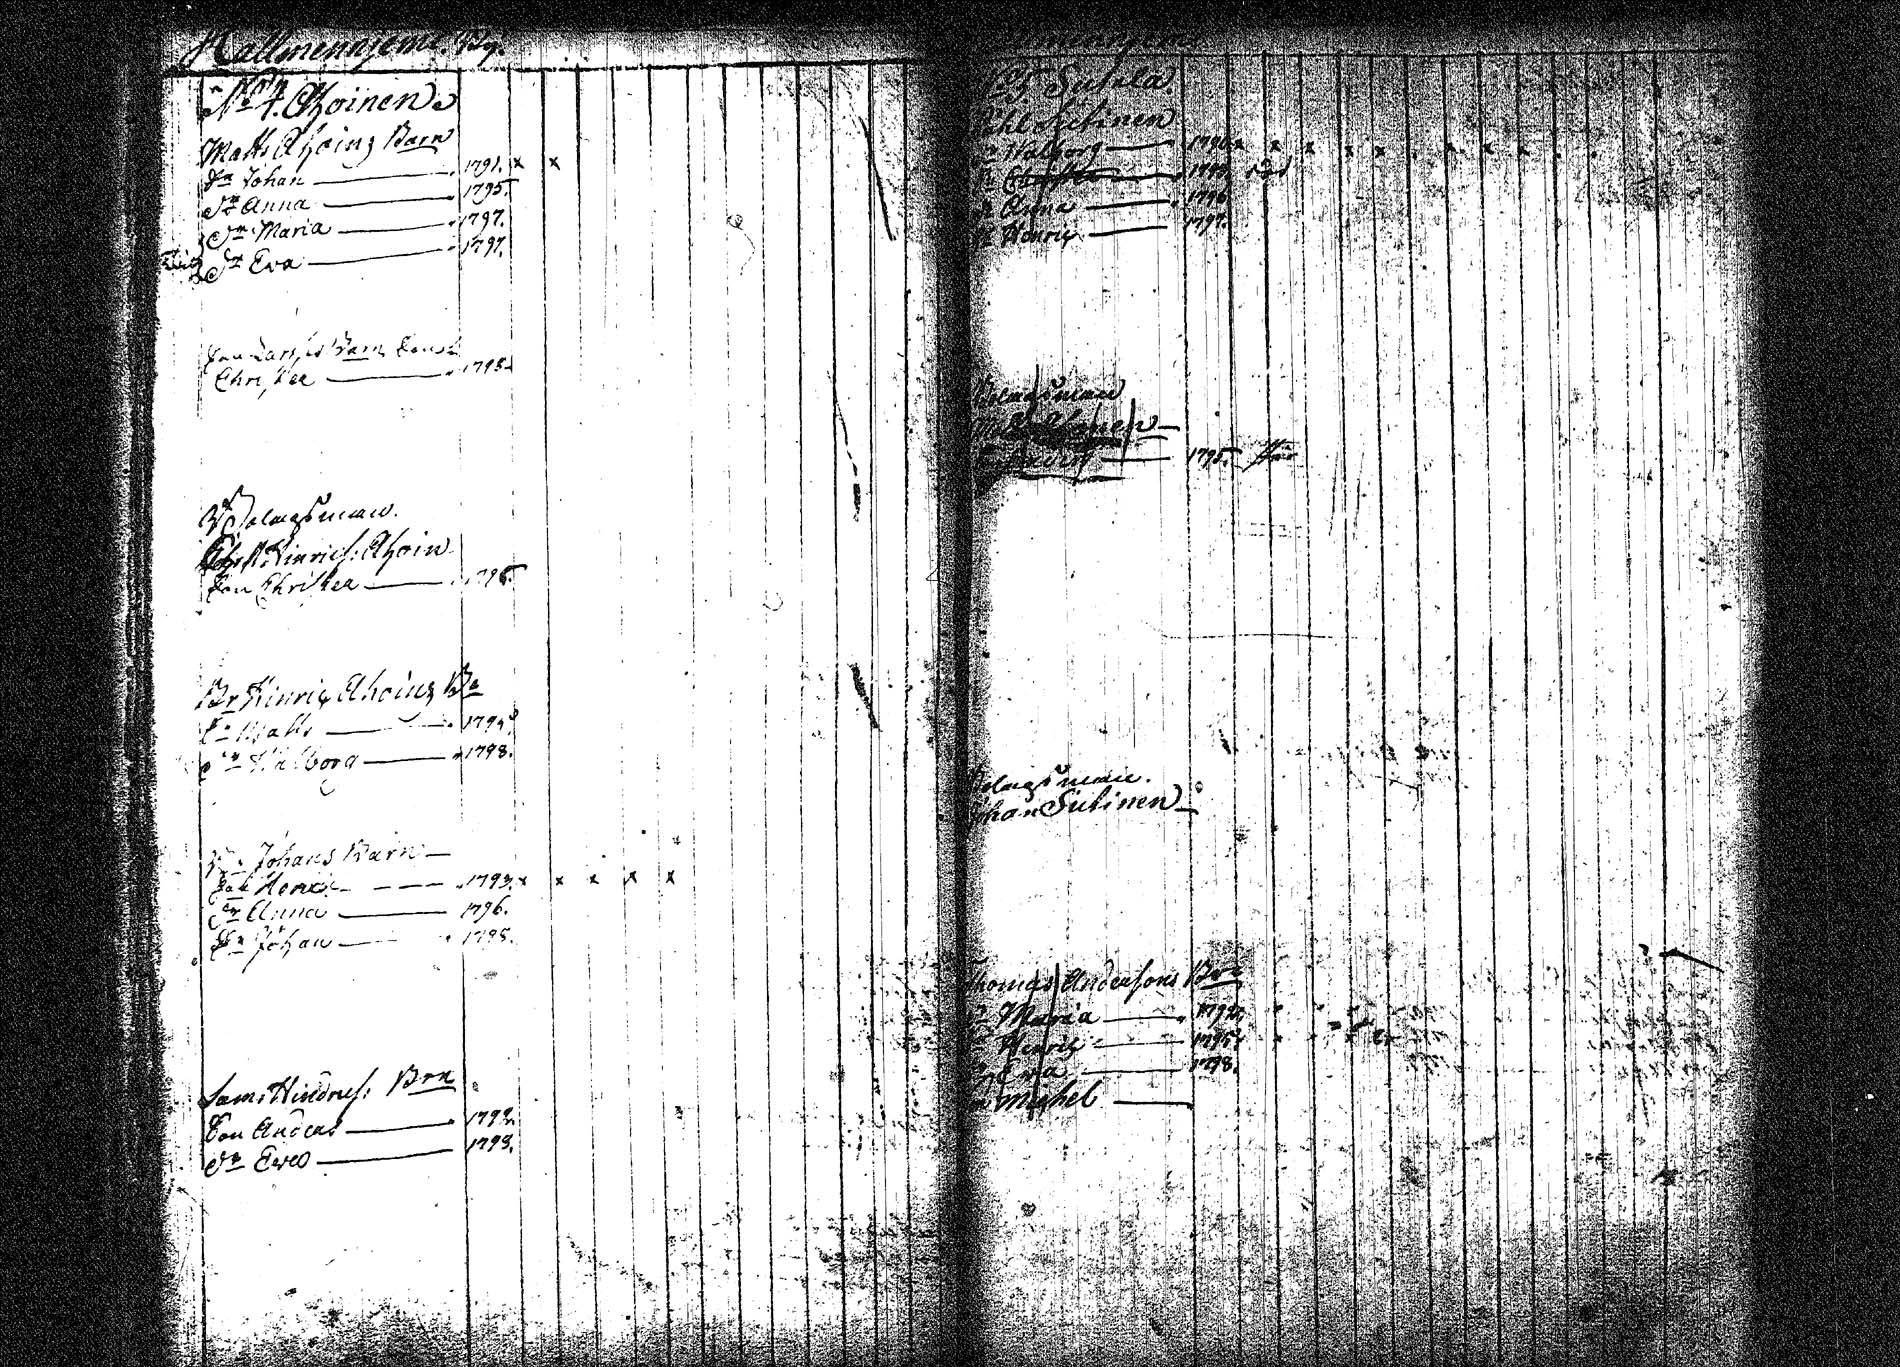 Hallmenniemi By.
No 4. Ahoinen
Matts Ahoinz Barn
Sn Johan 1791. x x
Dr Anna 1795.
Dr Maria 1797.
Dr Eva 1797.
Son Larses Barn Son
Christer 1795
Bolagsman.
Hinrics: Ahoin
Son Christer 1796.
Br Hinric Ahoinz Bn
Sn Matts 1795
Dr Walborg 1798.
Br Johans Barn
Son Henric 1793. x x x x x
Dr Anna 1796.
Sn Johan 1798.
Sam: Hindrics: Brn
Son Anders 1792.
Dr Eva 1793.
No 5 Sutela.
Påhl Sutinen
Dr Walborg 1790 x x x x x x x x x
1793. död
Dr Anna 1796
Sn Henric 1797.
Bolagsman
1795.
Bolagsman.
Johan Sutinen
Thomas Andersons Brn
Dr Maria 1792.
Sn Henric 1795.
Dr Eva 1798.
Sn Michel